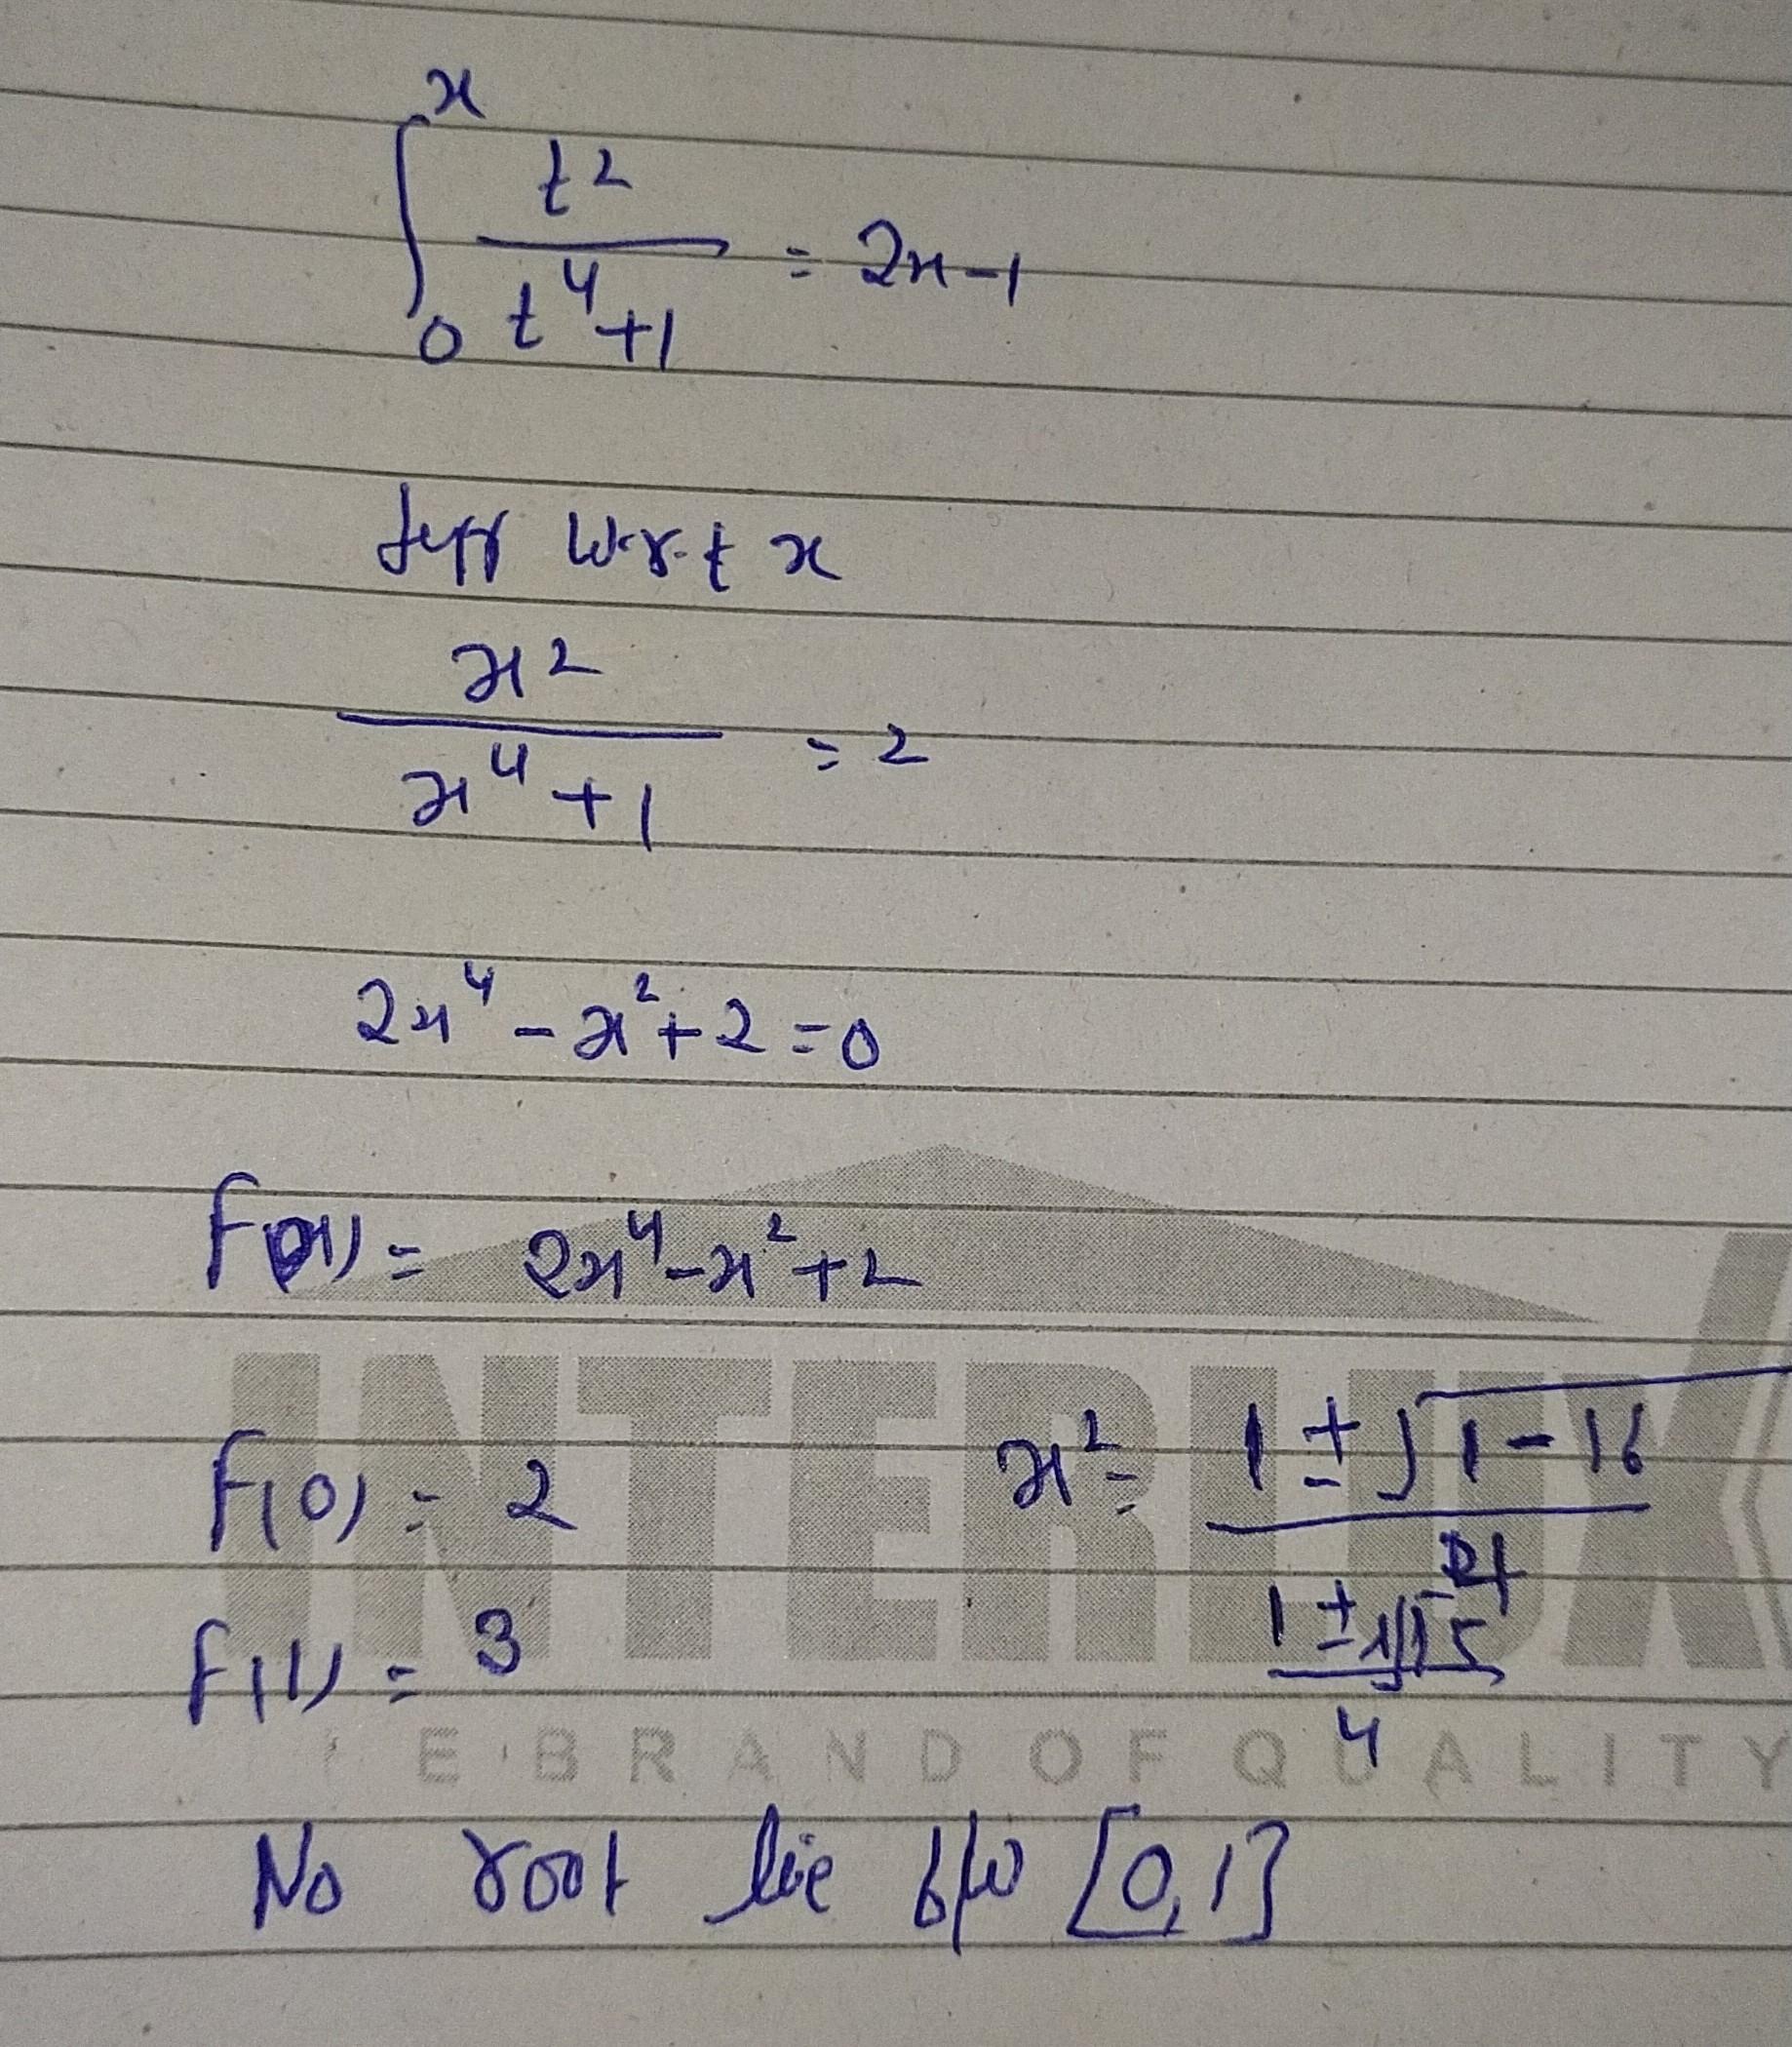 ∫₀ˣ t²/(t⁴+1) = 2x-1
diff w.r.t x
x²/(x⁴+1) = 2
2x⁴ - x² + 2 = 0
f(x) = 2x⁴ - x² + 2
f(0) = 2
x² = (1 ± √(1-16))/4
f(1) = 3
(1 ± √15)/4
INTERLUX
E BRAND OF QUALITY
No root lie b/w [0,1]